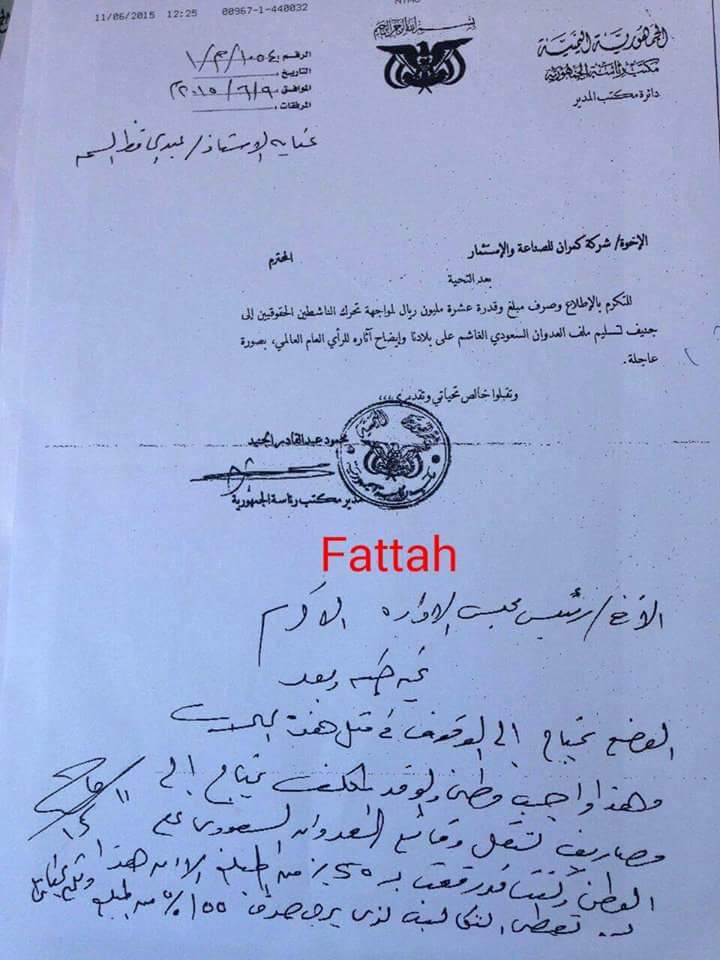 11/06/2015 12:25 00967-1-440032
بسم الله الرحمن الرحيم
الجمهورية اليمنية
مكتب رئاسة الجمهورية
دائرة مكتب المدير
الرقم: ١/٣/١٠٥٤
التاريخ:
الموافق: ٢٠١٥/٦/٩
المرفقات:
عناية الاستاذ/
الإخوة/ شركة كمران للصناعة والإستثمار المحترم
بعد التحية
للتكرم بالإطلاع وصرف مبلغ وقدرة عشرة مليون ريال لمواجهة تحرك الناشطين الحقوقيين إلى
جنيف لتسليم ملف العدوان السعودي الغاشم على بلادنا وإيضاح آثاره للرأي العام العالمي، بصورة
عاجلة.
وتقبلوا خالص تحياتي وتقديري،،،
محمود عبدالقادر الجنيد
مدير مكتب رئاسة الجمهورية
Fattah
الأخ/ رئيس مجلس الاداره الاكرم
تحيه طيبه وبعد
الوضع يحتاج الى الوقوف في مثل هذه
وهذا واجب وطني والوفد المكلف يحتاج الى
مصاريف لنقل وقائع العدوان السعودي على
الوطن وكنت قد رفعت بـ ٥٠٪ من المبلغ الا ان هذا
تغطي التكاليف لذى يرجى صرف ١٠٠٪ من المبلغ